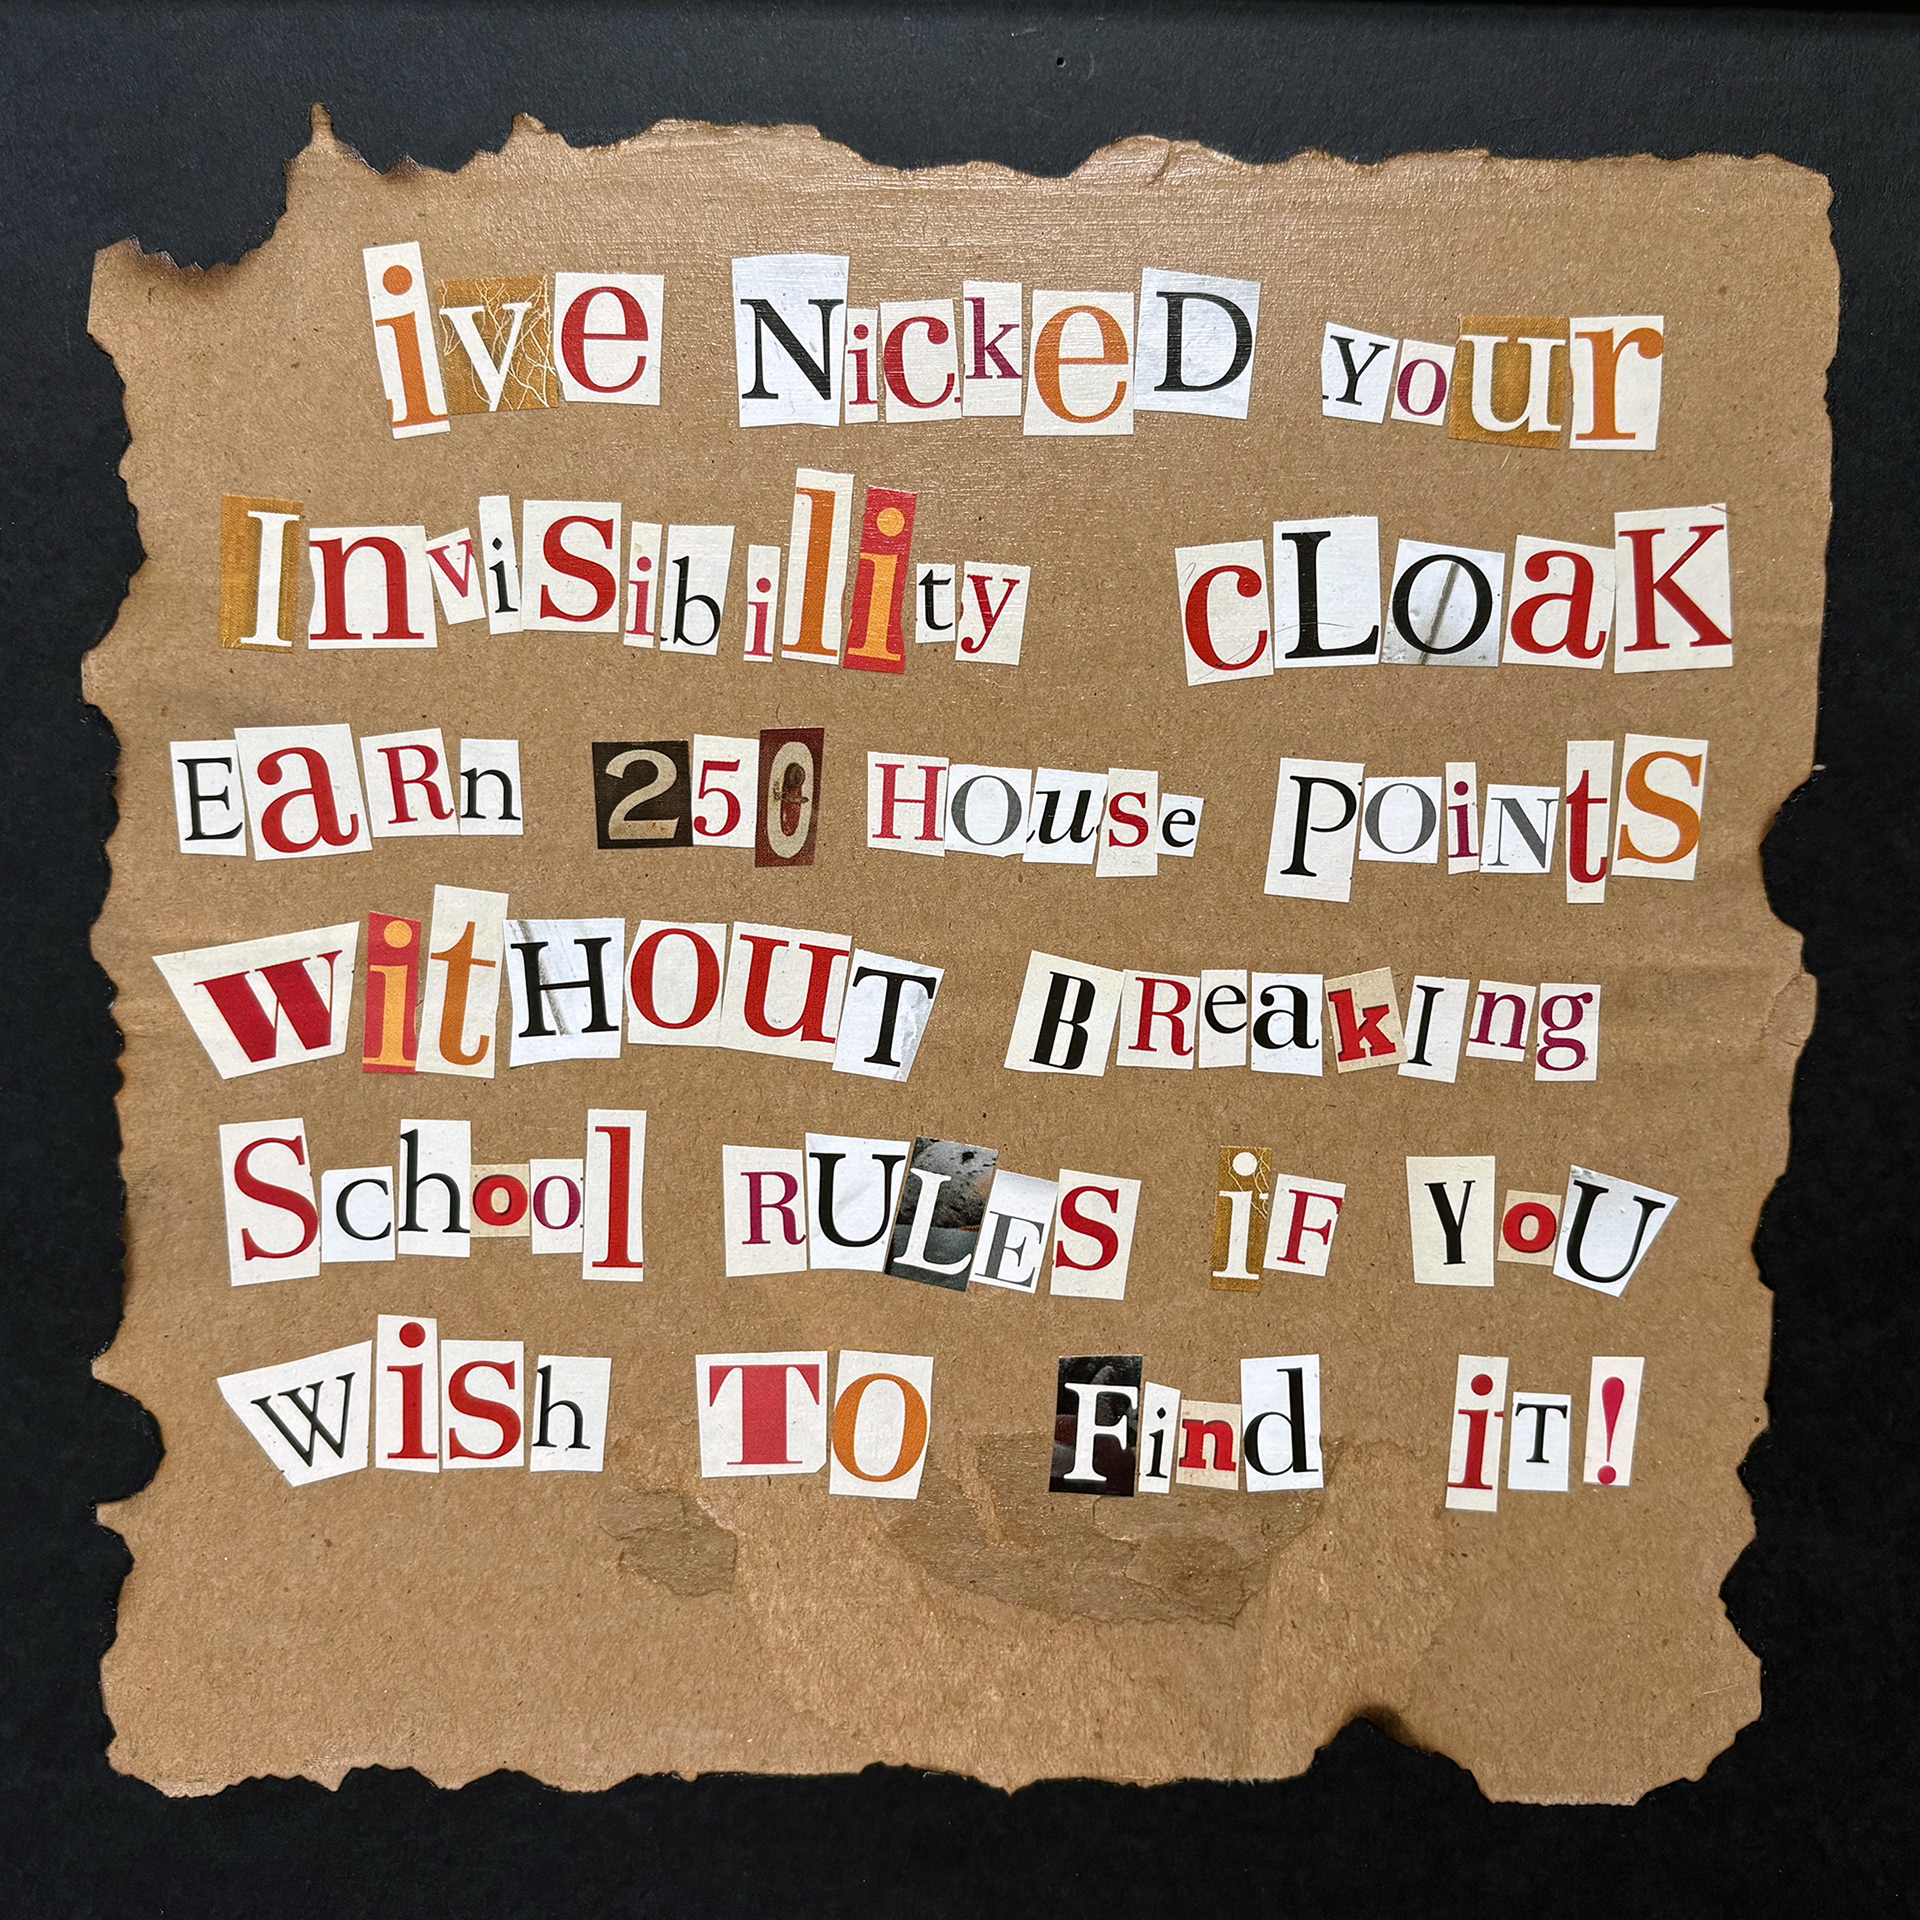 ive NicKeD your
InviSibility cLOaK
EaRn 250 HOuse POiNtS
WitHOUT BReakIng
School RULES iF YoU
WiSh TO Find iT!